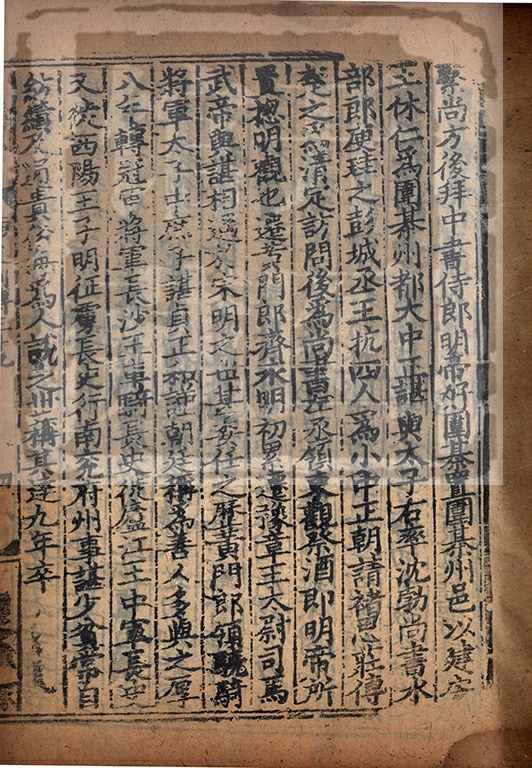 繫尚方後拜中書侍郎明帝好圍棊置圍棊州邑以建安
王休仁爲圍棊州都大中正諶與太子右率沈勃尚書水
部郎庾珪之彭城丞王杭四人爲小中正朝請褚思莊傅
楚之爲清定訪問後爲尚書左丞領東觀祭酒即明帝所
置揔明觀也遷黃門郎齊永明初累遷豫章王太尉司馬
武帝與諶相遇於宋明之世甚委任之歷黃門郎領驍騎
將軍太子中庶子諶貞正和謹朝廷稱爲善人多與之厚
八年轉冠軍將軍長沙王車騎長史徙廬江王中軍長史
又徙西陽王子明征虜長史行南兖府州事諶少貧常自
紡績及通貴後每爲人說之世稱其達九年卒